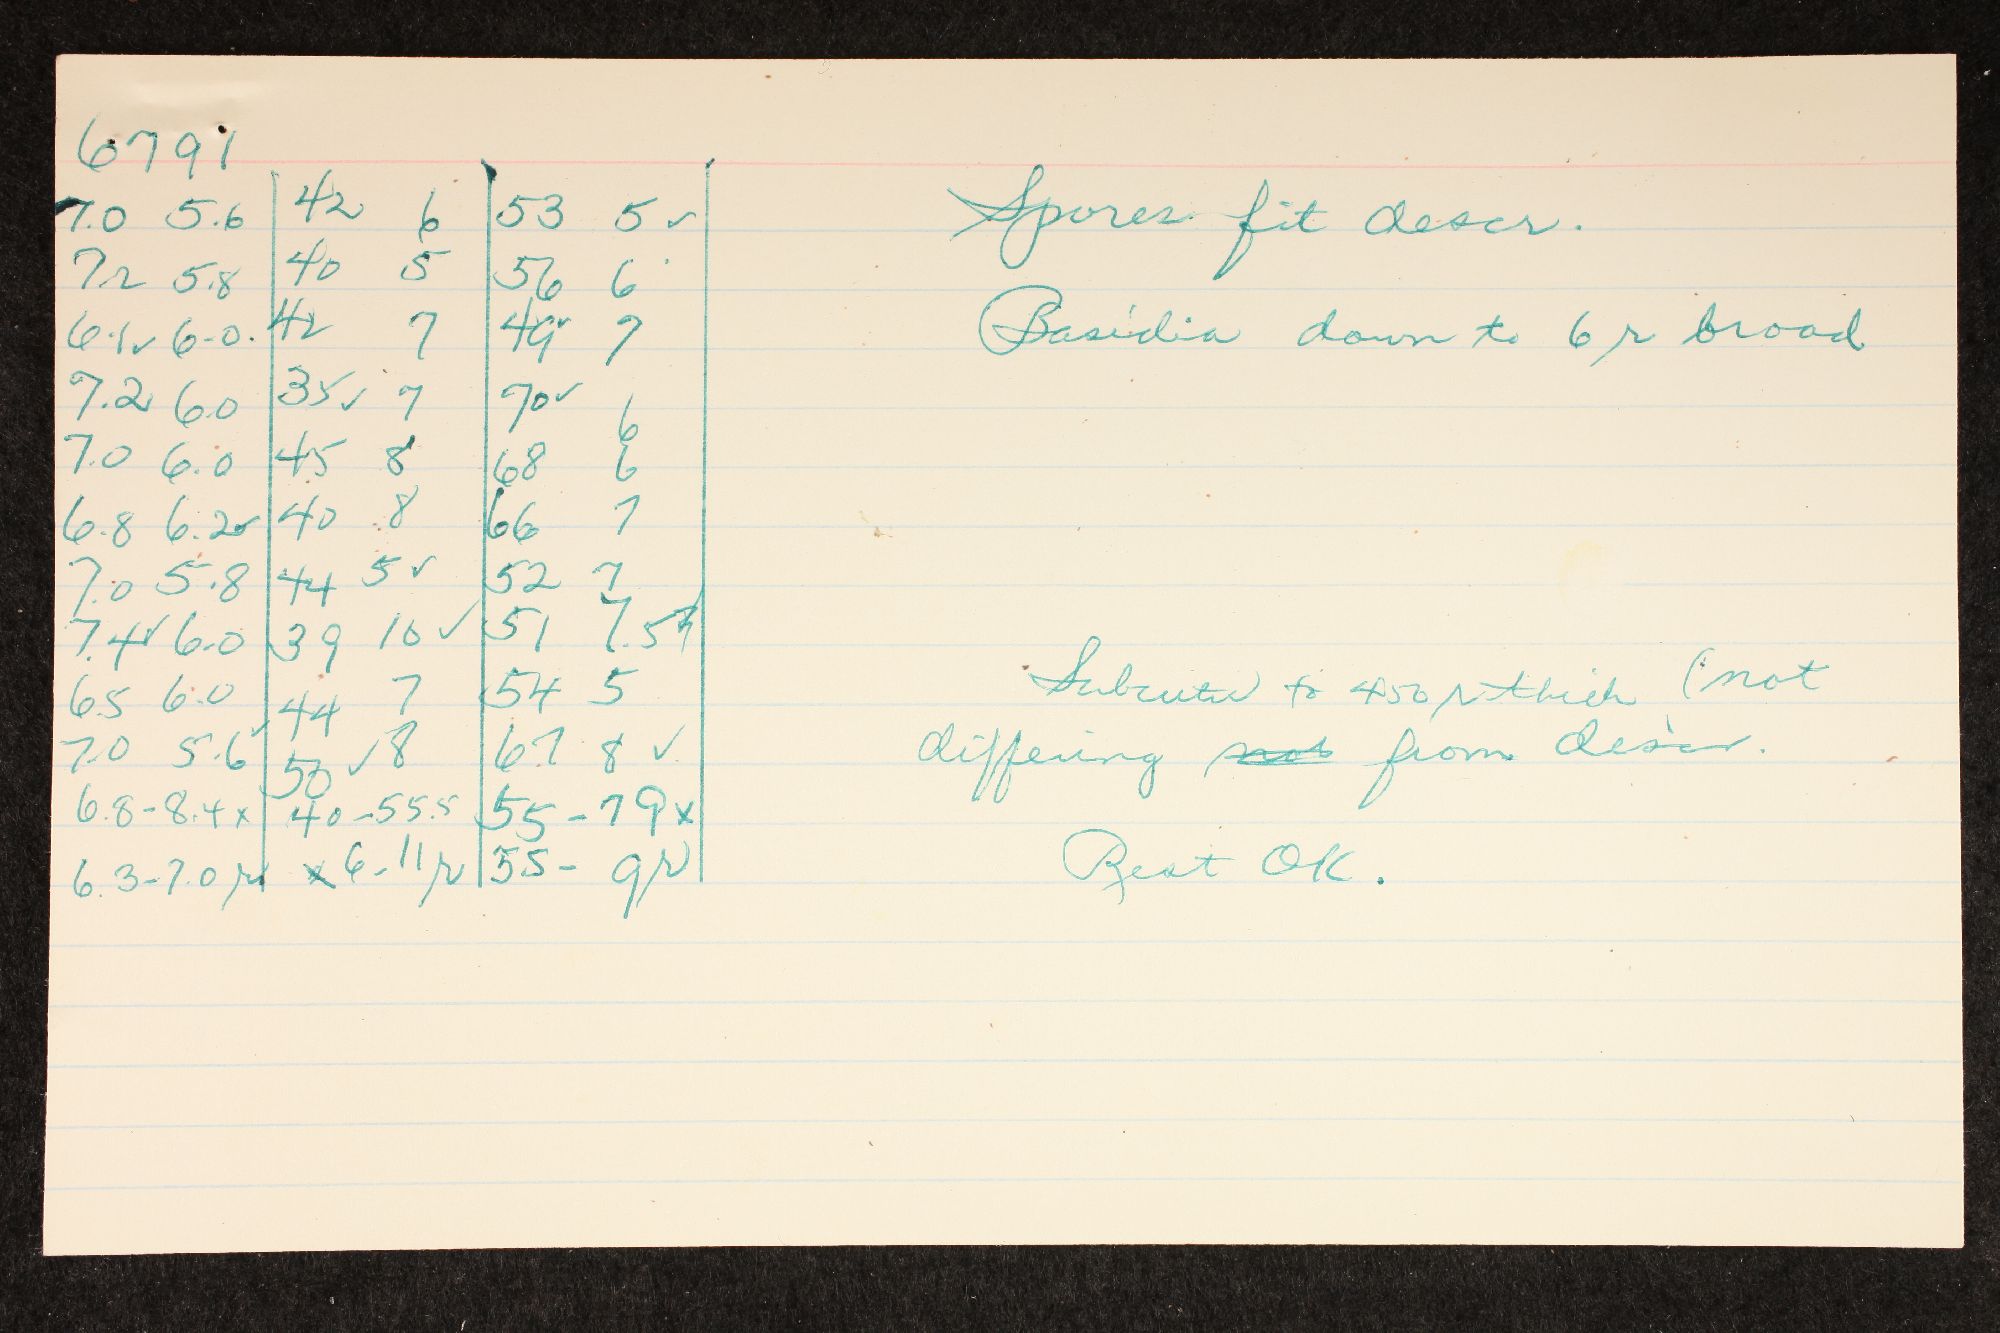 6791
7.0 5.6 42 6 53 5 ✓
7.2 5.8 40 5 56 6
6.1 ✓ 6.0. 42 7 49 ✓ 7
7.2 6.0 35 ✓ 7 70 ✓ 6
7.0 6.0 45 8 68 6
6.8 6.2 ✓ 40 8 66 7
7.0 5.8 44 5 ✓ 52 7
7.4 ✓ 6.0 39 10 ✓ 51 7.5
6.5 6.0 44 7 54 5
7.0 5.6 ✓ 50 ✓ 8 67 8 ✓
6.8-8.4 x 40-55.5 55-79 x
6.3-7.0 μ x 6-11 μ 5.5-9 μ
Spores fit descr.
Basidia down to 6 μ broad
Subcutis to 450 μ thick (not
differing not from descr.
Rest OK.